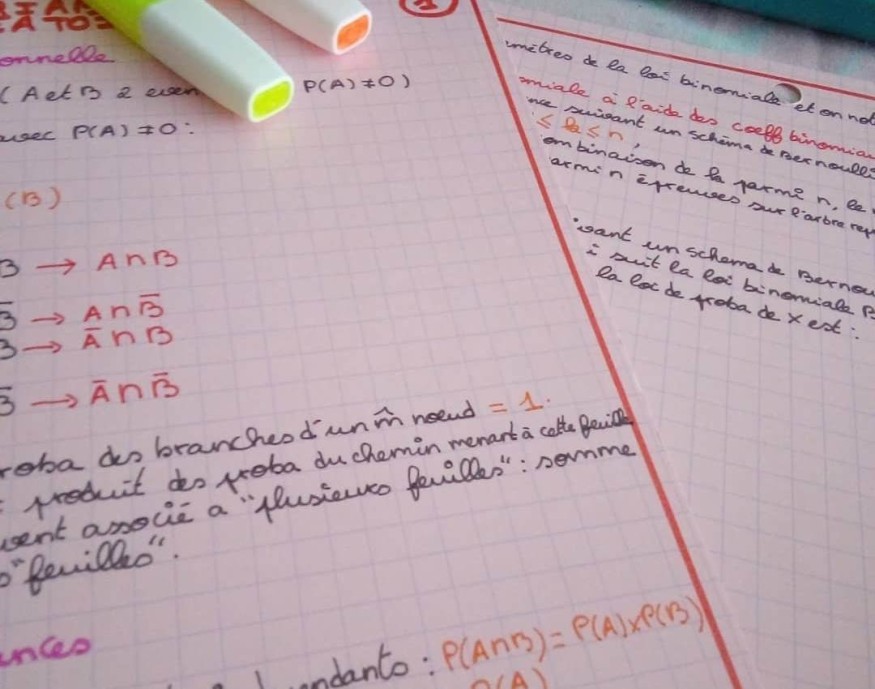 onnelle
(A et B 2 even P(A) ≠ 0)
avec P(A) ≠ 0 :
(B)
B → A ∩ B
B̅ → A ∩ B̅
B → A̅ ∩ B
B̅ → A̅ ∩ B̅
roba des branches d'un m̂ noeud = 1.
: produit des proba du chemin menant à cette feuille
vent associé a "plusieurs feuilles" : somme
s "feuilles".
ances
endants : P(A∩B) = P(A)×P(B)
P(A)
1
mètres de la loi binomiale et on not
omiale à l'aide des coeff binomia
nce suivant un schéma de Bernoulli
≤ k ≤ n,
ombinaison de k parmi n, le
armi n épreuves sur l'arbre rep
ivant un schema de Bernou
i suit la loi binomiale B
la loi de proba de X est :